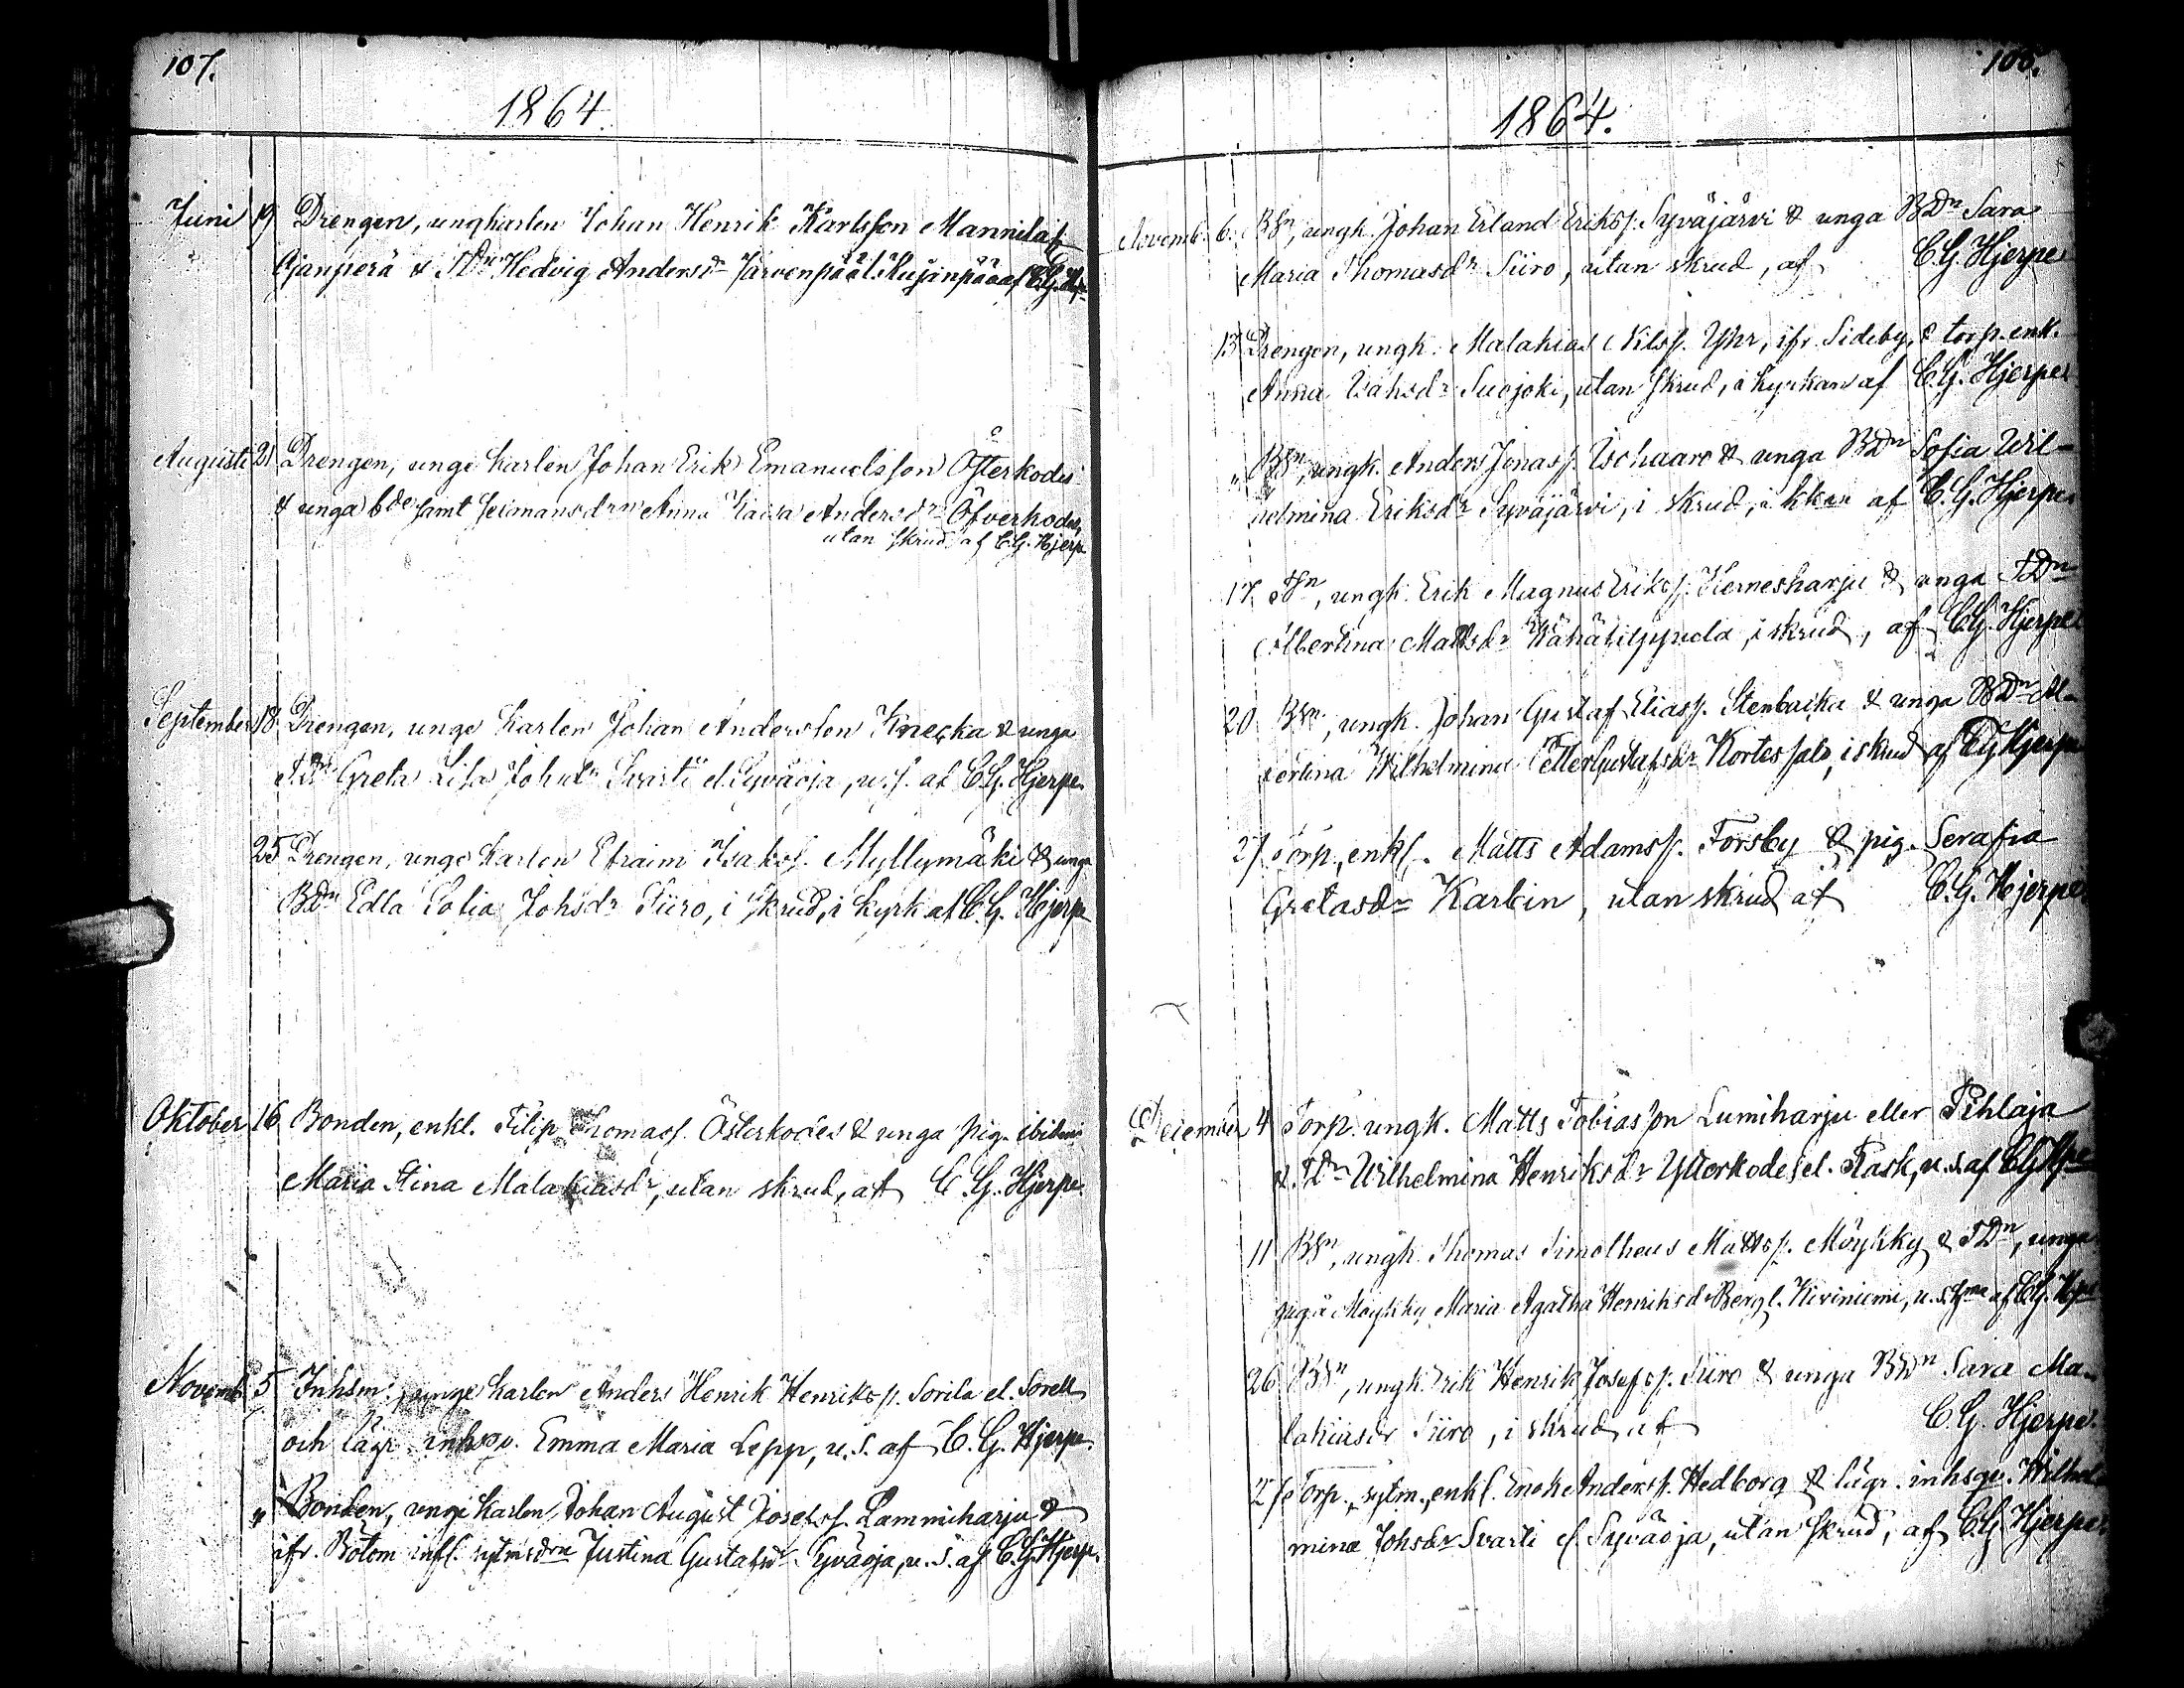 107.
1864.
Juni 19 Drengen, ungkarlen Johan Henrik Karlsson Mannila
Ojanperä & TDn Hedvig Andersdr Järvenpää l. Kujanpää af C.G. Hje
Augusti 21 Drengen, unge karlen Johan Erik Emanuelsson Österkodes
& unga bde samt Anna Kaisa Andersdr Öfverkodes,
utan skrud af C.G. Hjerpe
September 18. Drengen, unge karlen Johan Andersson Knecka & unga
TDn Greta Lisa Johsdr Svarti el. Syväoja, u. s. af C.G. Hjerpe.
25 Drengen, unge karlen Efraim Isakss. Myllymäki & unga
BDn Edla Sofia Johsdr Siiro, i skrud, i kyrk. af C.G. Hjerpe
Oktober 16 Bonden, enkl. Filip Thomass. Österkodes & unga pig. ibidem
Maria Stina Malakiasdr, utan skrud, af C.G. Hjerpe.
Novemb. 5 Inhsm., unge karlen Anders Henrik Henrikss. Sorila el. Sorell
och lägr. inhsqv. Emma Maria Lepp, u. s. af C.G. Hjerpe.
" Bonden, unge karlen Johan August Josefss. Lammiharju &
ifr. Bötom infl. sytmsdrn Justina Gustafsdr Syväoja, u. s. af C.G. Hjerpe.
108.
1864.
Novemb. 6. BSn, ungk. Johan Erland Erikss. Syväjärvi & unga BDn Sara
Maria Thomasdr Siiro, utan skrud, af C.G. Hjerpe
13 Drengen, ungk. Malakias Nilss. Yhr, ifr. Sideby, & torp. enk.
Anna Isaksdr Suojoki, utan skrud, i kyrkan af C.G. Hjerpe
" BSn, ungk. Anders Jonass. Isohaaro & unga BDn Sofia Wil-
helmina Eriksdr Syväjärvi, i skrud, i kkan af C.G. Hjerpe.
17. TSn, ungk. Erik Magnus Erikss. Hernesharju & unga TDn
Albertina Mattsdr Vähätiippula, i skrud, af C.G. Hjerpe
20 BSn, ungk. Johan Gustaf Eliass. Stenbacka & unga BDn Al-
bertina Wilhelmina Petter Gustafsdr Kortessalo, i skrud af C.G. Hjerpe
27 Torp., enkl. Matts Adamss. Forsby & pig. Serafia
Gretasdr Karlein, utan skrud af C.G. Hjerpe
December 4 Torp. ungk. Matts Tobiasson Lumiharju eller Pihlaja
& TDn Wilhelmina Henriksdr Ytterkodes el. Rask, u. s. af C.G. Hjpe
11 BSn, ungk. Thomas Timotheus Mattss. Möykky & TDn, unga
pig. å Möykky Maria Agatha Henriksdr Berg l. Kiviniemi, u. s. af C.G. Hjpe
26 BSn, ungk. Erik Henrik Josefss. Siiro & unga BDn Sara Ma-
lakiasdr Siiro, i skrud, af C.G. Hjerpe.
27 Torp., sytm., enkl. Enok Anderss. Hedborg & lägr. inhsqv. Wilhel-
mina Johsdr Svarti el. Syväoja, utan skrud, af C.G. Hjerpe.